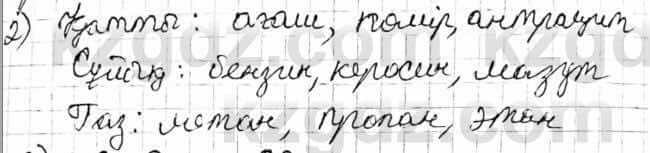 2) Қатты: ағаш, көмір, антрацит
Сұйық: бензин, керосин, мазут
Газ: метан, пропан, этан